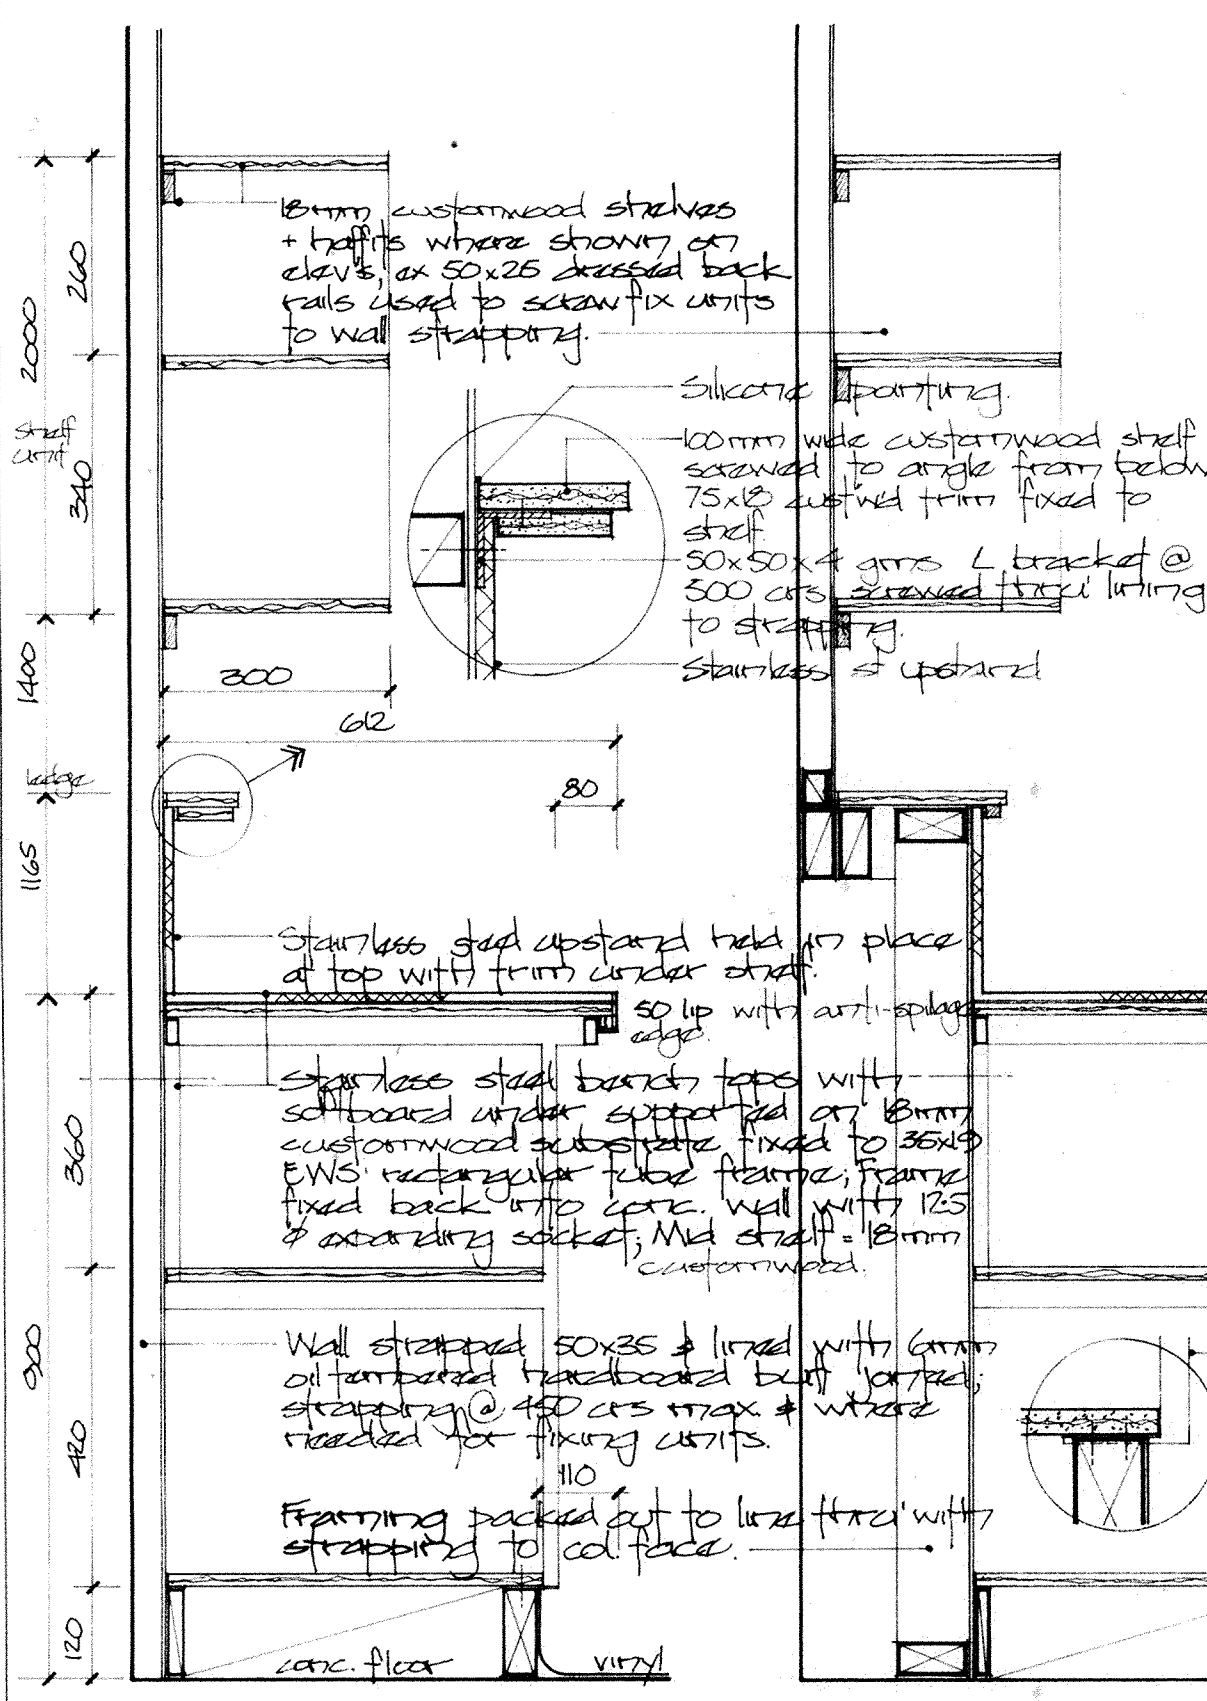 18mm customwood shelves
+ haffits where shown on
elev's, ex 50x25 dressed back
rails used to screw fix units
to wall strapping.
Silicone pointing.
100mm wide customwood shelf
screwed to angle from below
75x18 cust'w'd trim fixed to
shelf.
50x50x4 gms L bracket @
300 crs screwed thru' lining
to strapping.
Stainless st upstand
260
2000
shelf
unit
340
1400
300
612
80
ledge
1165
Stainless steel upstand held in place
at top with trim under shelf.
50 lip with anti-spillage
edge.
Stainless steel bench tops with
softboard under supported on 18mm
customwood substrate fixed to 35x19
EWS rectangular tube frame; Frame
fixed back into conc. wall with 12.5
ø expanding socket; Mid shelf = 18mm
customwood.
360
900
Wall strapped 50x35 & lined with 6mm
oil tempered hardboard butt jointed;
strapping @ 450 crs max. & where
needed for fixing units.
420
110
Framing packed out to line thru' with
strapping to col. face.
120
conc. floor
vinyl